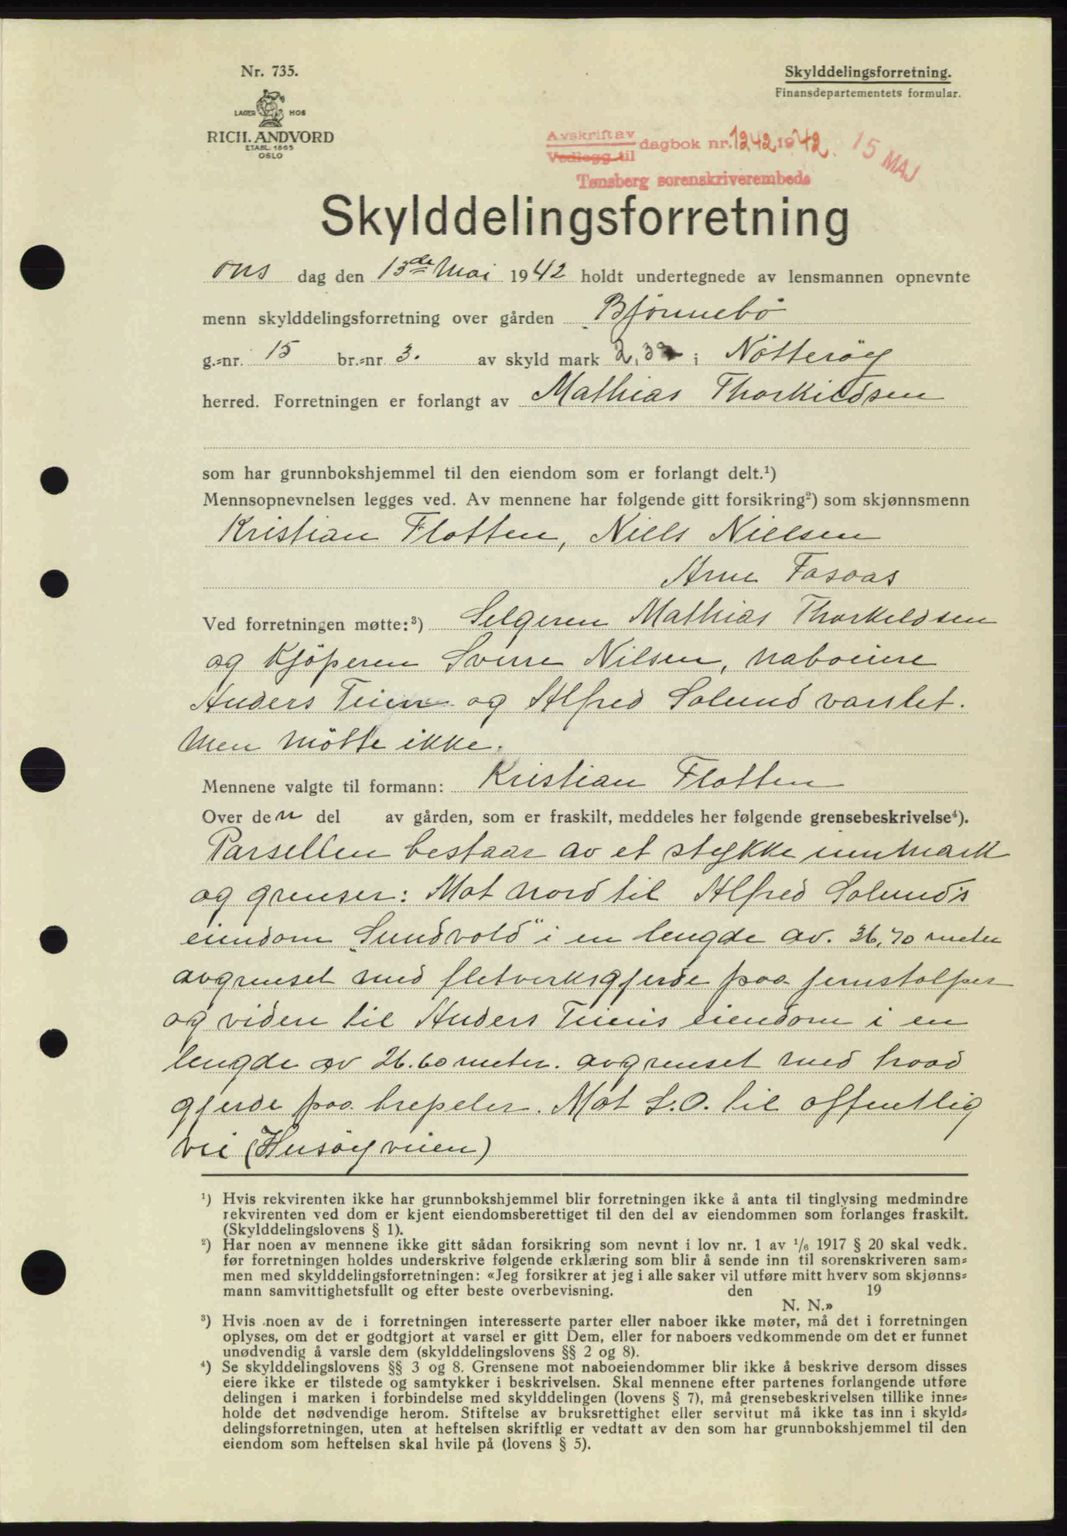 Nr. 735.
LAGER HOS
RICH. ANDVORD
ETABL. 1865
OSLO
Skylddelingsforretning.
Finansdepartementets formular.
Avskrift av
Vedlegg til
dagbok nr. 1242 1942. 15 MAJ
Tønsberg sorenskriverembede
Skylddelingsforretning
ons dag den 13de Mai 1942 holdt undertegnede av lensmannen opnevnte
menn skylddelingsforretning over gården Bjønnebö
g.-nr. 15 br.-nr 3. av skyld mark 2,39 i Nötteröy
herred. Forretningen er forlangt av Mathias Thorkildsen
som har grunnbokshjemmel til den eiendom som er forlangt delt.¹)
Mennsopnevnelsen legges ved. Av mennene har følgende gitt forsikring²) som skjønnsmenn
Kristian Flotten, Niels Nielsen
Arne Fasoas
Ved forretningen møtte:³) Selgeren Mathias Thorkeldsen
og Kjöperen Sverre Nilsen, naboeiere
Anders Teien og Alfred Solund varslet.
Men mötte ikke.
Mennene valgte til formann: Kristian Flotten
Over den del av gården, som er fraskilt, meddeles her følgende grensebeskrivelse⁴).
Parsellen bestaar av et stykke innmark
og grenser: Mot nord til Alfred Solund's
eiendom "Sundvold" i en lengde av. 36,70 meter
avgrenset med fletverksgjerde paa jernstolper
og videre til Anders Teiens eiendom i en
lengde av 26.60 meter. avgrenset med traad
gjerde paa trepeler. Mot S.O. til offentlig
vei (Husöy veien)
¹) Hvis rekvirenten ikke har grunnbokshjemmel blir forretningen ikke å anta til tinglysing medmindre
rekvirenten ved dom er kjent eiendomsberettiget til den del av eiendommen som forlanges fraskilt.
(Skylddelingslovens § 1).
²) Har noen av mennene ikke gitt sådan forsikring som nevnt i lov nr. 1 av ¹/₆ 1917 § 20 skal vedk.
før forretningen holdes underskrive følgende erklæring som blir å sende inn til sorenskriveren sam-
men med skylddelingsforretningen: «Jeg forsikrer at jeg i alle saker vil utføre mitt hverv som skjønns-
mann samvittighetsfullt og efter beste overbevisning. den 19
N. N.»
³) Hvis noen av de i forretningen interesserte parter eller naboer ikke møter, må det i forretningen
oplyses, om det er godtgjort at varsel er gitt Dem, eller for naboers vedkommende om det er funnet
unødvendig å varsle dem (skylddelingslovens §§ 2 og 8).
⁴) Se skylddelingslovens §§ 3 og 8. Grensene mot naboeiendommer blir ikke å beskrive dersom disses
eiere ikke er tilstede og samtykker i beskrivelsen. Skal mennene efter partenes forlangende utføre
delingen i marken i forbindelse med skylddelingen (lovens § 7), må grensebeskrivelsen tillike inne-
holde det nødvendige herom. Stiftelse av bruksrettighet eller servitut må ikke tas inn i skyld-
delingsforretningen, uten at heftelsen skriftlig er vedtatt av den som har grunnbokshjemmel til den
eiendom som heftelsen skal hvile på (lovens § 5).